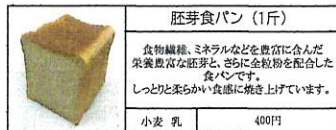 胚芽食パン（1斤）
食物繊維、ミネラルなどを豊富に含んだ
栄養豊富な胚芽と、さらに全粒粉を配合した
食パンです。
しっとりと柔らかい食感に焼き上げています。
小麦 乳
400円